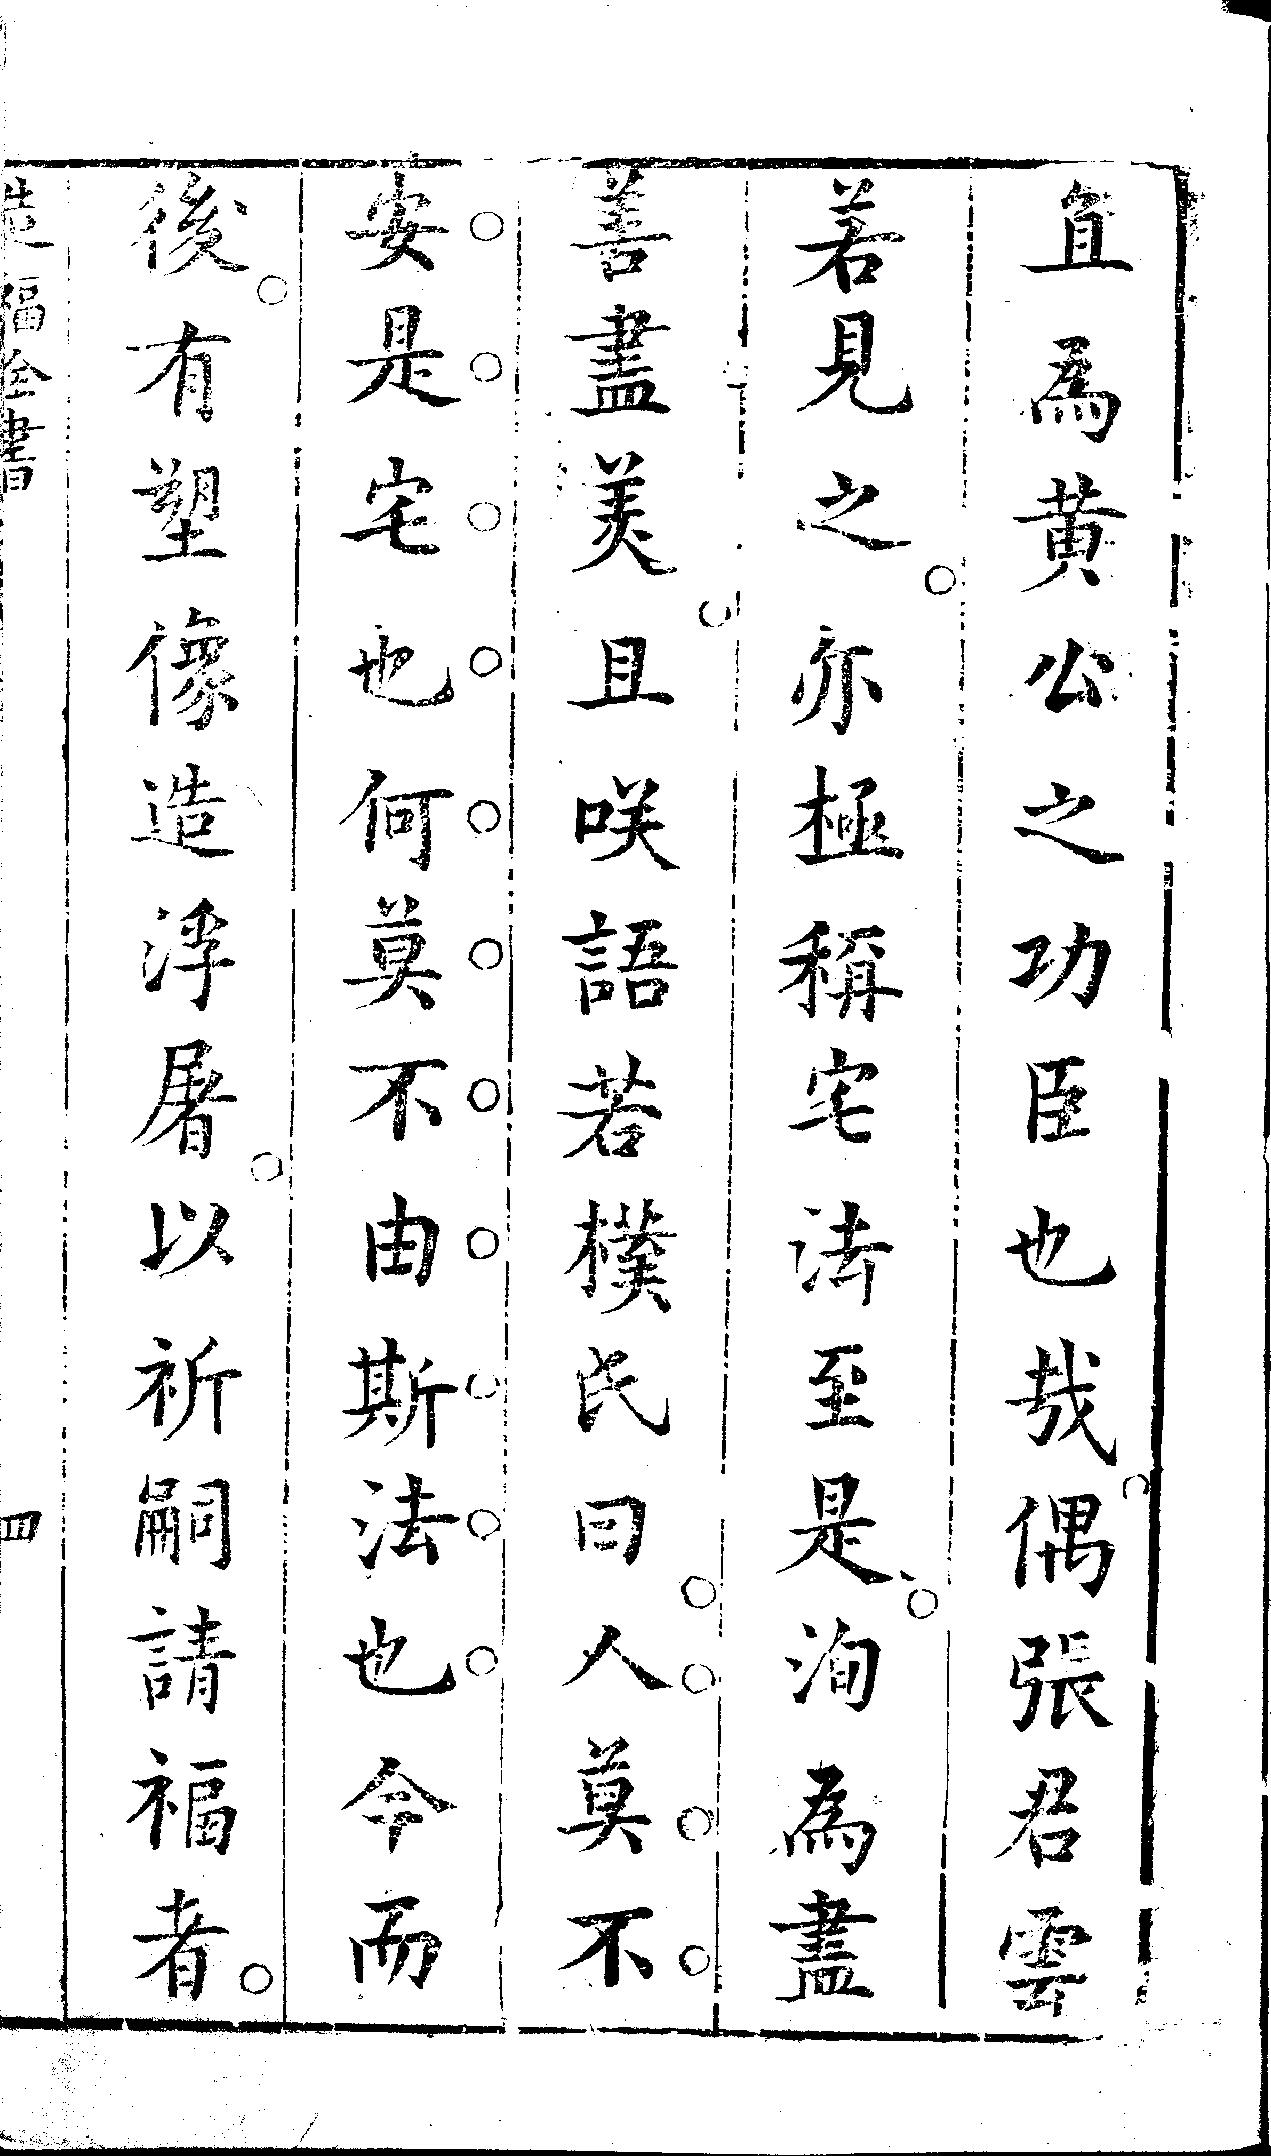 直為黄公之功臣也哉偶張君雲
若見之亦極稱宅法至是洵為盡
善盡美且咲語若樸氏曰人莫不
安是宅也何莫不由斯法也今而
後有塑像造浮屠以祈嗣請福者
造福全書
四